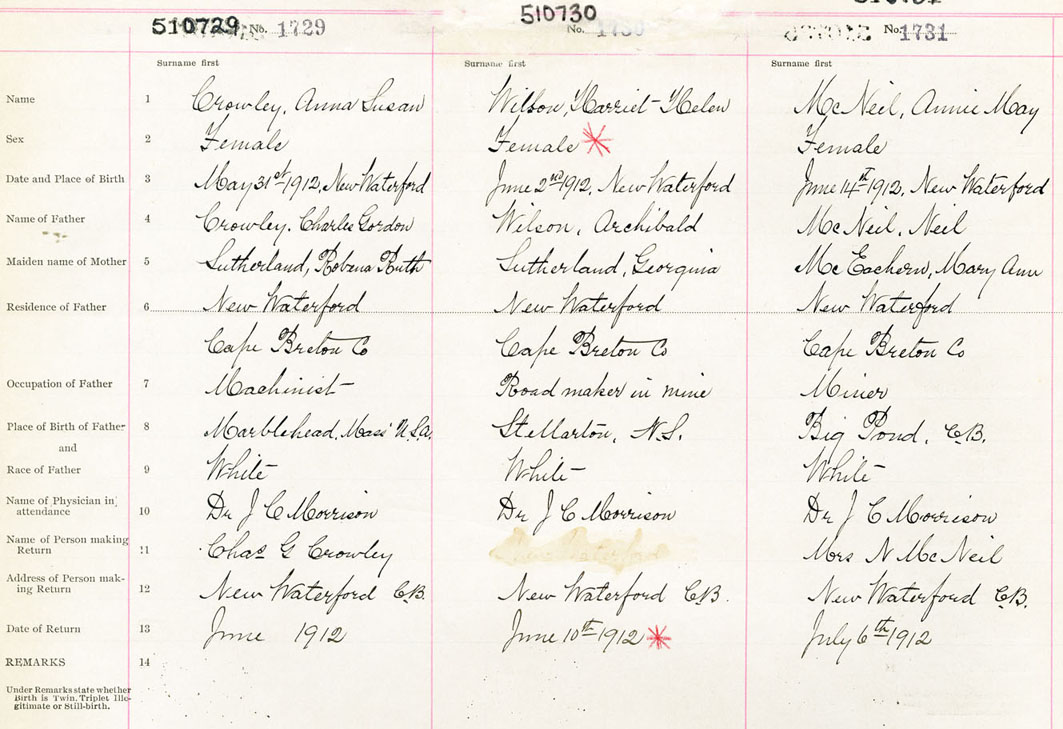 510729 No. 1729 510730 No. 1730 No. 1731
Surname first Surname first Surname first
Name 1 Crowley, Anna Susan Wilson, Harriet Helen McNeil, Annie May
Sex 2 Female Female Female
Date and Place of Birth 3 May 31st 1912, New Waterford June 2nd 1912, New Waterford June 14th 1912, New Waterford
Name of Father 4 Crowley, Charles Gordon Wilson, Archibald McNeil, Neil
Maiden name of Mother 5 Sutherland, Robena Ruth Sutherland, Georgina McEachern, Mary Ann
Residence of Father 6 New Waterford New Waterford New Waterford
Cape Breton Co Cape Breton Co Cape Breton Co
Occupation of Father 7 Machinist Road maker in mine Miner
Place of Birth of Father 8 Marblehead, Mass U.S.A. Stellarton, N.S. Big Pond, C.B.
and
Race of Father 9 White White White
Name of Physician in attendance 10 Dr J C Morrison Dr J C Morrison Dr J C Morrison
Name of Person making Return 11 Chas G Crowley Mrs N McNeil
Address of Person mak-
ing Return 12 New Waterford C.B. New Waterford C.B. New Waterford C.B.
Date of Return 13 June 1912 June 10th 1912 July 6th 1912
REMARKS 14
Under Remarks state whether
Birth is Twin, Triplet Ille-
gitimate or Still-birth.